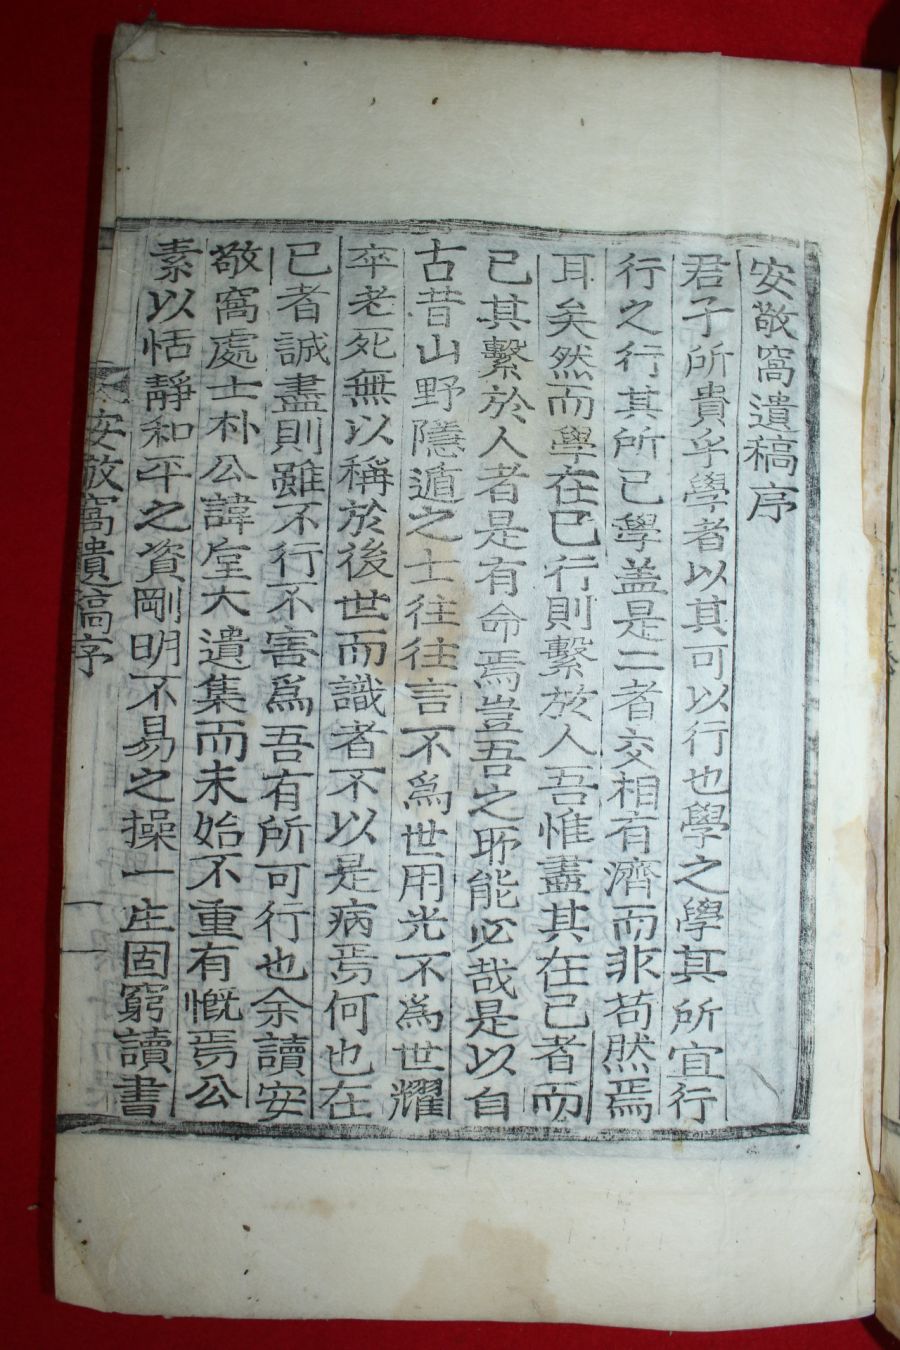 安敬窩遺稿序
君子所貴乎學者以其可以行也學之學其所宜行
行之行其所已學盖是二者交相有濟而非苟然焉
耳矣然而學在已行則繫於人吾惟盡其在已者而
已其繫於人者是有命焉豈吾之所能必哉是以自
古昔山野隱遁之士往往言不爲世用光不爲世耀
卒老死無以稱於後世而識者不以是病焉何也在
已者誠盡則雖不行不害爲吾有所可行也余讀安
敬窩處士朴公諱堂大遺集而未始不重有慨焉公
素以恬靜和平之資剛明不易之操一庄固窮讀書
安敬窩遺稿序 一